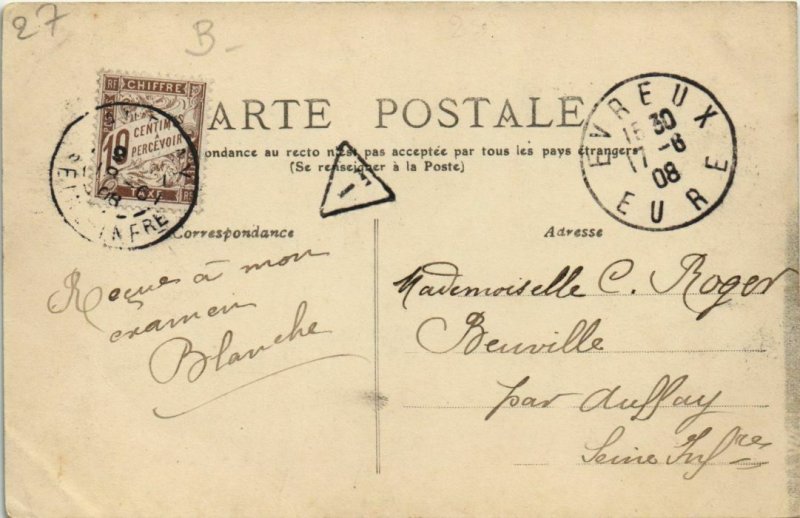 27
B-
CARTE POSTALE
pondance au recto n'est pas acceptée par tous les pays étrangers
(Se renseigner à la Poste)
RF CHIFFRE
10 CENTIM
À
PERCEVOIR
TAXE
T
EVREUX
30
17 -8
08
EURE
Correspondance
Adresse
Reçue à mon
examen
Blanche
Mademoiselle C. Roger
Beuville
par Auffay
Seine Infre